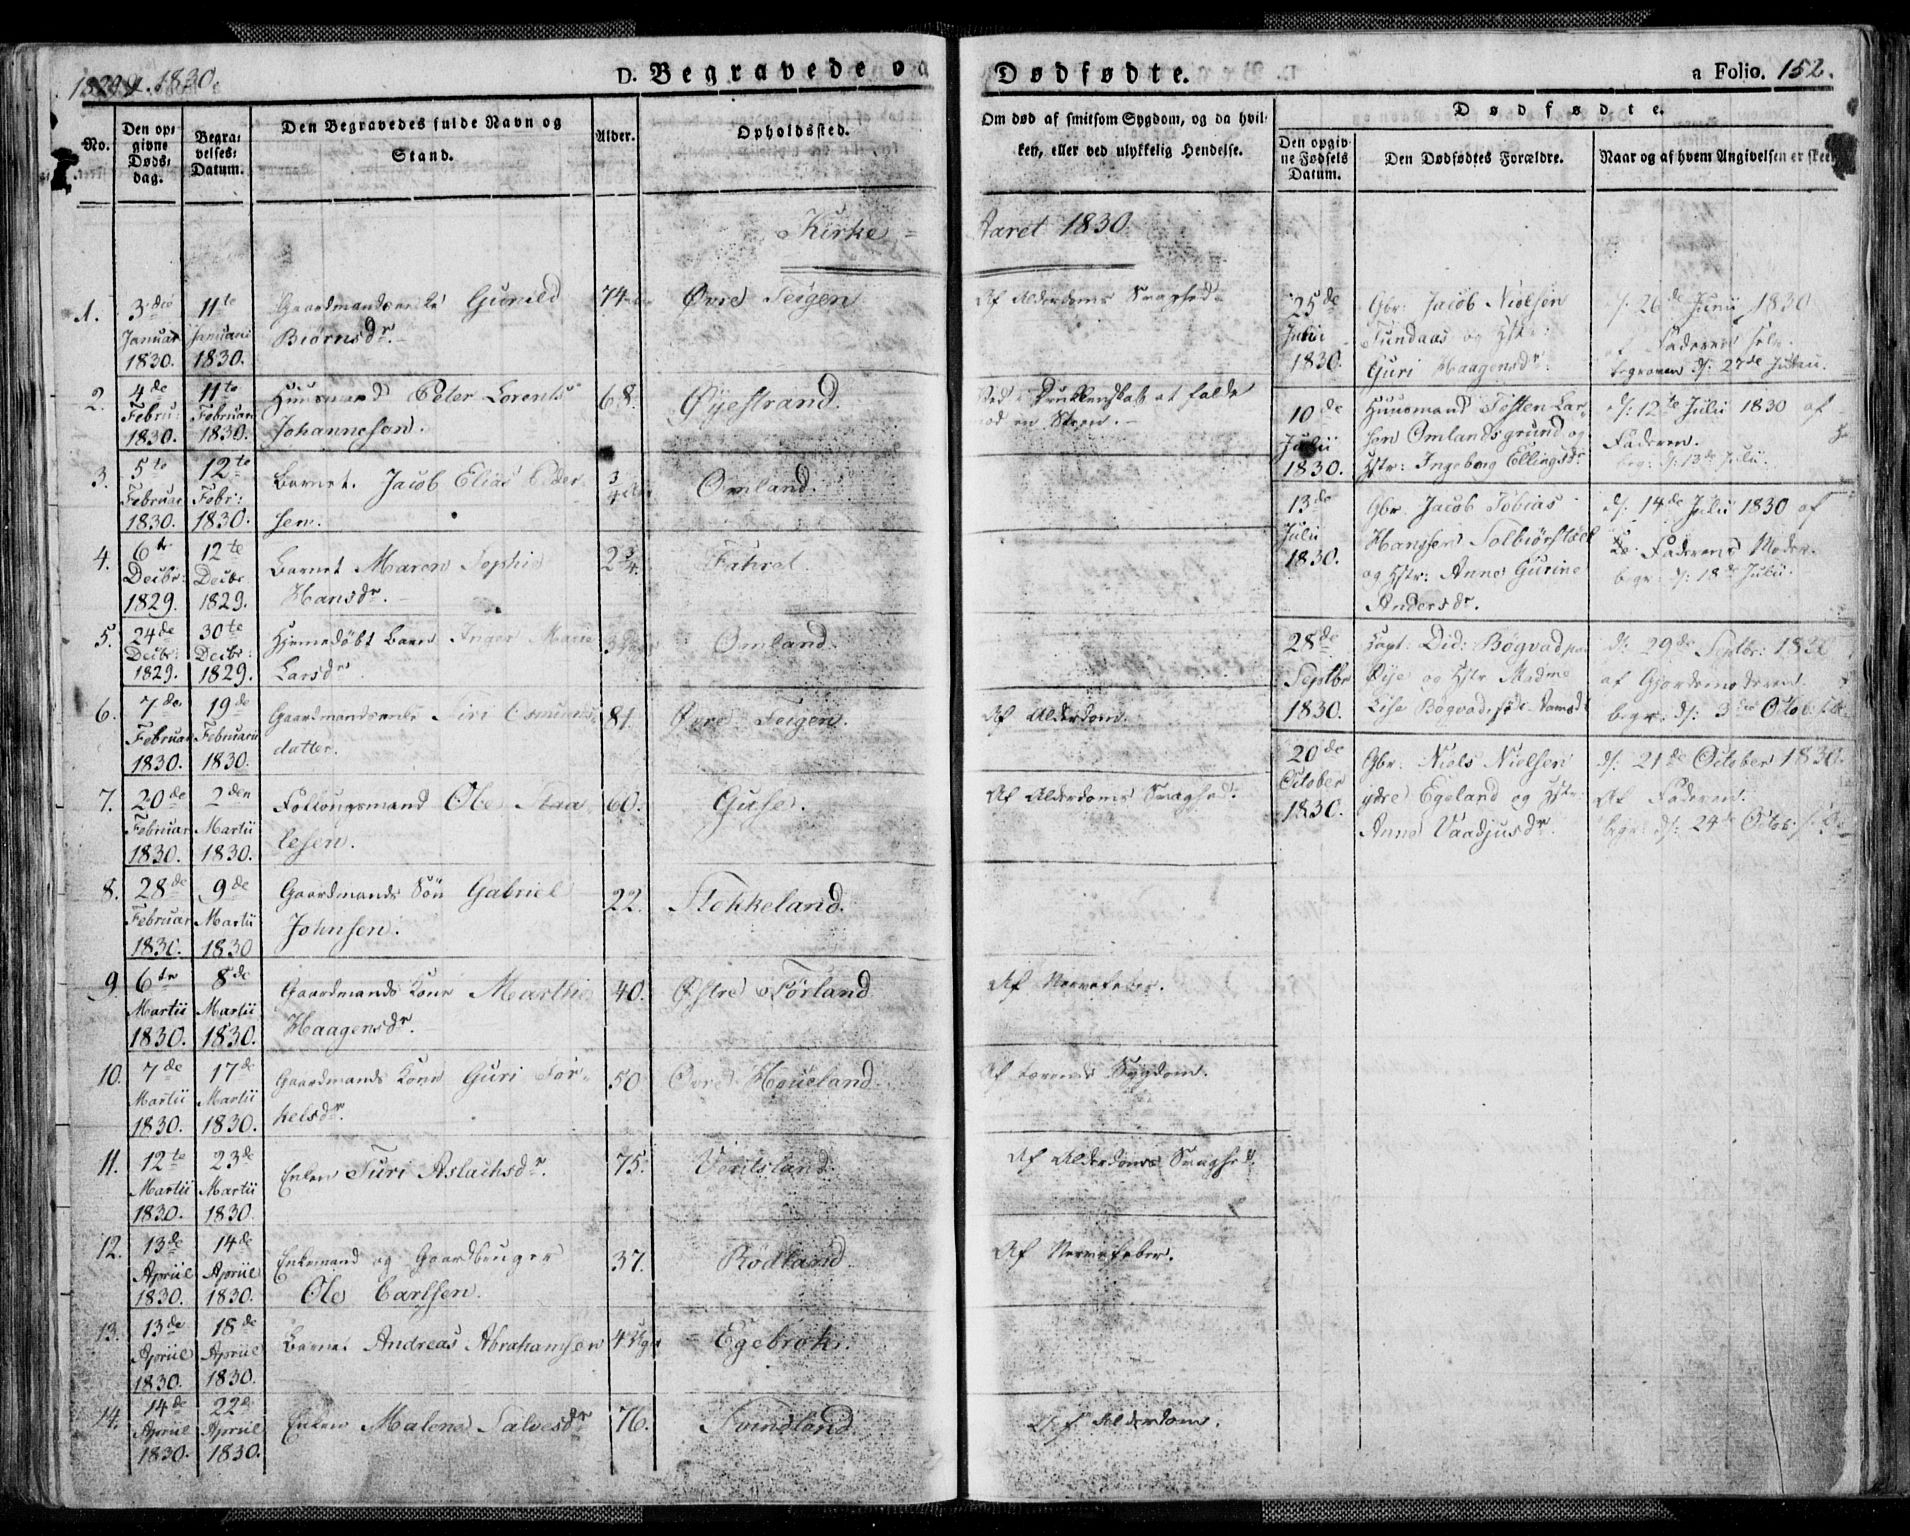 1829. 1830.
D. Begravede og Dødfødte.
a Folio. 152.
No.
Den opgivne Døds-dag.
Begravelses-Datum.
Den Begravedes fulde Navn og Stand.
Alder.
Opholdssted.
Om død af smitsom Sygdom, og da hvilken, eller ved ulykkelig Hendelse.
Dødfødte.
Den opgivne Fødsels Datum.
Den Dødfødtes Forældre.
Naar og af hvem Angivelsen er skeet
Kirke-Aaret 1830
1. 3die Januar 1830. 11te Januarii 1830. Gaardmandsenke Gunild
Biørnsdr. 74 Øvre Feigen Af Alderdoms Svaghed.
2. 4de Febru: 1830. 11te Februar 1830. Huusmand Peter Lorents
Johannesen. 68. Øyestrand. Ved Drukkenskab at falde
mod en Steen.
3. 5te Februar 1830. 12te Febr: 1830. Barnet Jacob Elias Peder
sen. 3/4 Omland.
4. 6te Decbr: 1829. 12te Decbr 1829. Barnet Maren Sophie
Hansdr. 2 3/4. Fahret.
5. 24de Decbr: 1829. 30te Decbr: 1829. Hjemedøbt Barn Inger Marie
Larsdr. Omland.
6. 7de Februar 1830. 19de Februarii 1830. Gaardmandsenke Siri Osmunds
datter. 81. Øvre Feigen. Af Alderdom.
7. 20de Februar 1830. 2den Martii 1830. Follougsmand Ole Staa
lesen. 60. Guse. Af Alderdoms Svaghed.
8. 28de Februar 1830. 9de Martii 1830 Gaardmands Søn Gabriel
Johnsen. 22. Stokkeland.
9. 6te Martii 1830. 8de Martii 1830. Gaardmands Kone Marthe
Haagensdr. 40. Østre Førland Af Nervefeber.
10. 7de Martii 1830. 17de Martii 1830. Gaardmands Kone Guri Tor-
kelsdr. 50 Øvre Houeland. Af Sygdom.
11. 12te Martii 1830. 23de Martii 1830 Enken Turi Aslachsdr. 75. Af Alderdoms Svaghed.
12. 13de Apriil 1830. 14de Apriil 1830. Enkemand og Gaardbruger
Ole Carlsen. 37. Rødland. Af Nervefeber.
13. 13de Apriil 1830. 18de Apriil 1830. Barnet Andreas Abrahamsen Egebrok.
14. 14de Apriil 1830. 22de Apriil 1830. Enken Malene Salvesdr 76. Svindland. Af Alderdom.
25de Juni 1830. Gbr: Jacob Nielsen
Tundaas og Hstr:
Guri Haagensdr. d: 26de Junii 1830
af Faderen selv
begraven d: 27de
10de Julii 1830. Huusmand Tosten Lar-
sen Omlandsgrund og
Hstr: Ingeborg Ellingsdr d: 12te Julii 1830 af
Faderen.
begr: d: 13de Julii.
13de Julii 1830. Gbr. Jacob Tobias
Hanssen Solbiørstøel
og Hstr: Anne Gurine
Andersdr. d: 14de Julii 1830 af
Faderens Moder.
begr: d: 18de Julii.
28de Septbr 1830. Capt: Did: Bøgvad paa
Øye og Hstr Madme
Lise Bøgvad d: 29de Septbr: 1830
af Gjordemoderen.
begr: d: 3die Octob:
20de October 1830. Gbr. Niels Nielsen
ydre Egeland og Hstr:
Anne Vaadjusdr. d: 21de October 1830.
Af Faderen.
begr: d: 24de Octob: